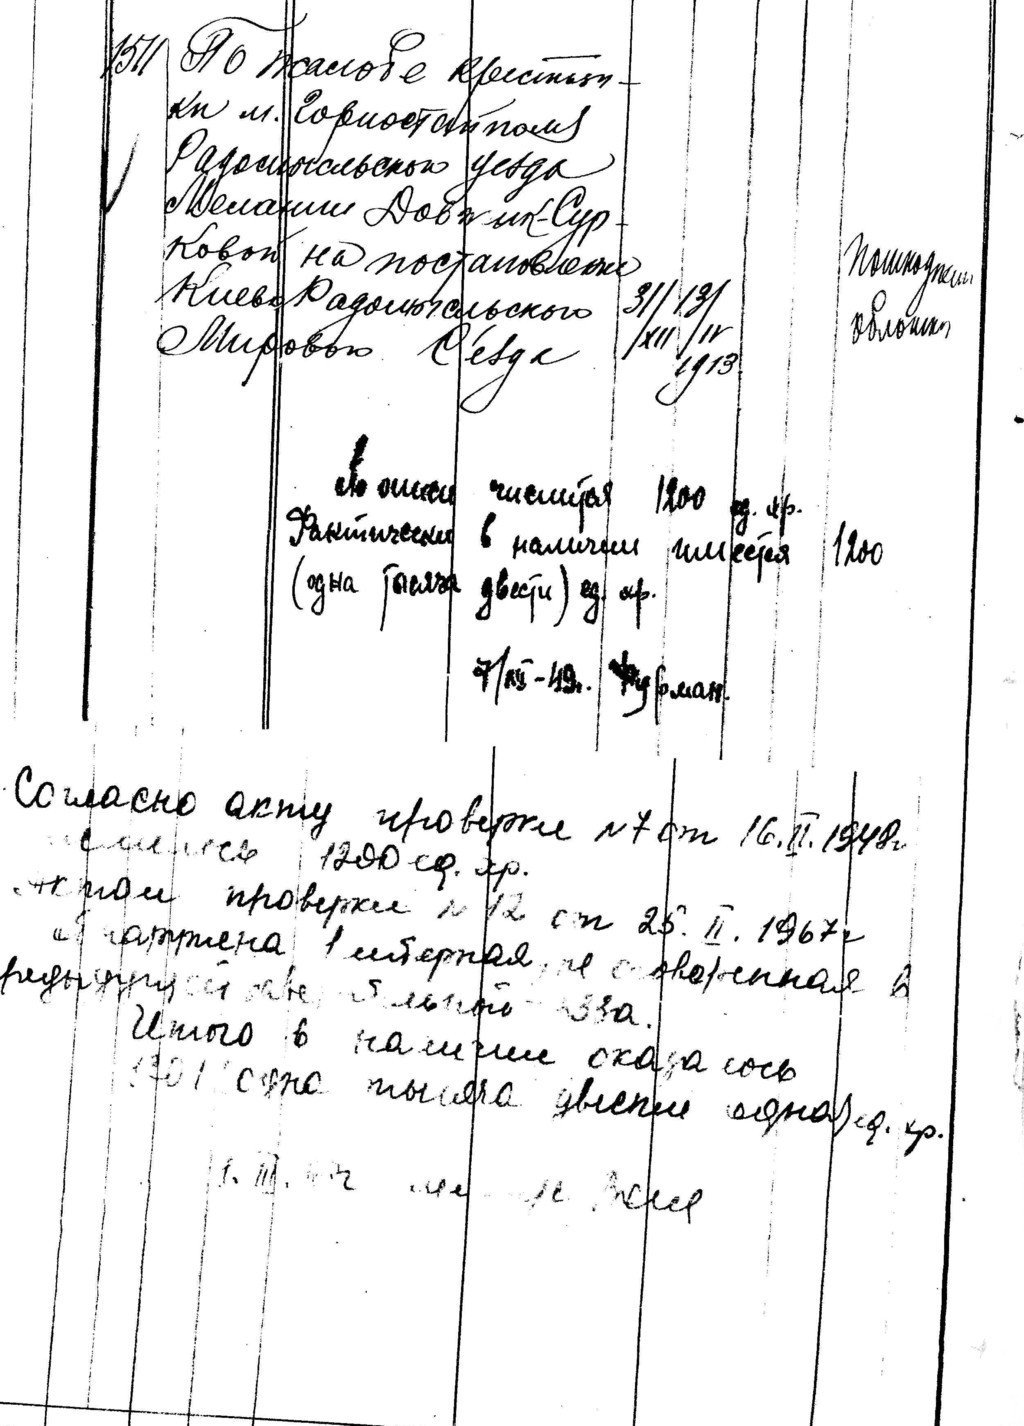 1511 По жалобе крестьян-
ки м. Горностайполя
Радомысльского уезда
Мелании Довж ик-Сур-
ковой на постановление
Киево Радомысльского 31/XII 13/IV
Мирового Съезда 1913
Пошкоджені
обложки
По описи числится 1200 ед. хр.
Фактически в наличии имеется 1200
(одна тысяча двести) ед. хр.
7/XII-49г. Фурман.
Согласно акту проверки №7 от 16.II.1948г
1200 ед. хр.
Актом проверки №12 от 25.II.1967г
1 литерная, не оговоренная в
предыдущей
Итого в наличии оказалось
1201 одна тысяча двести одна) ед. хр.
1.III.